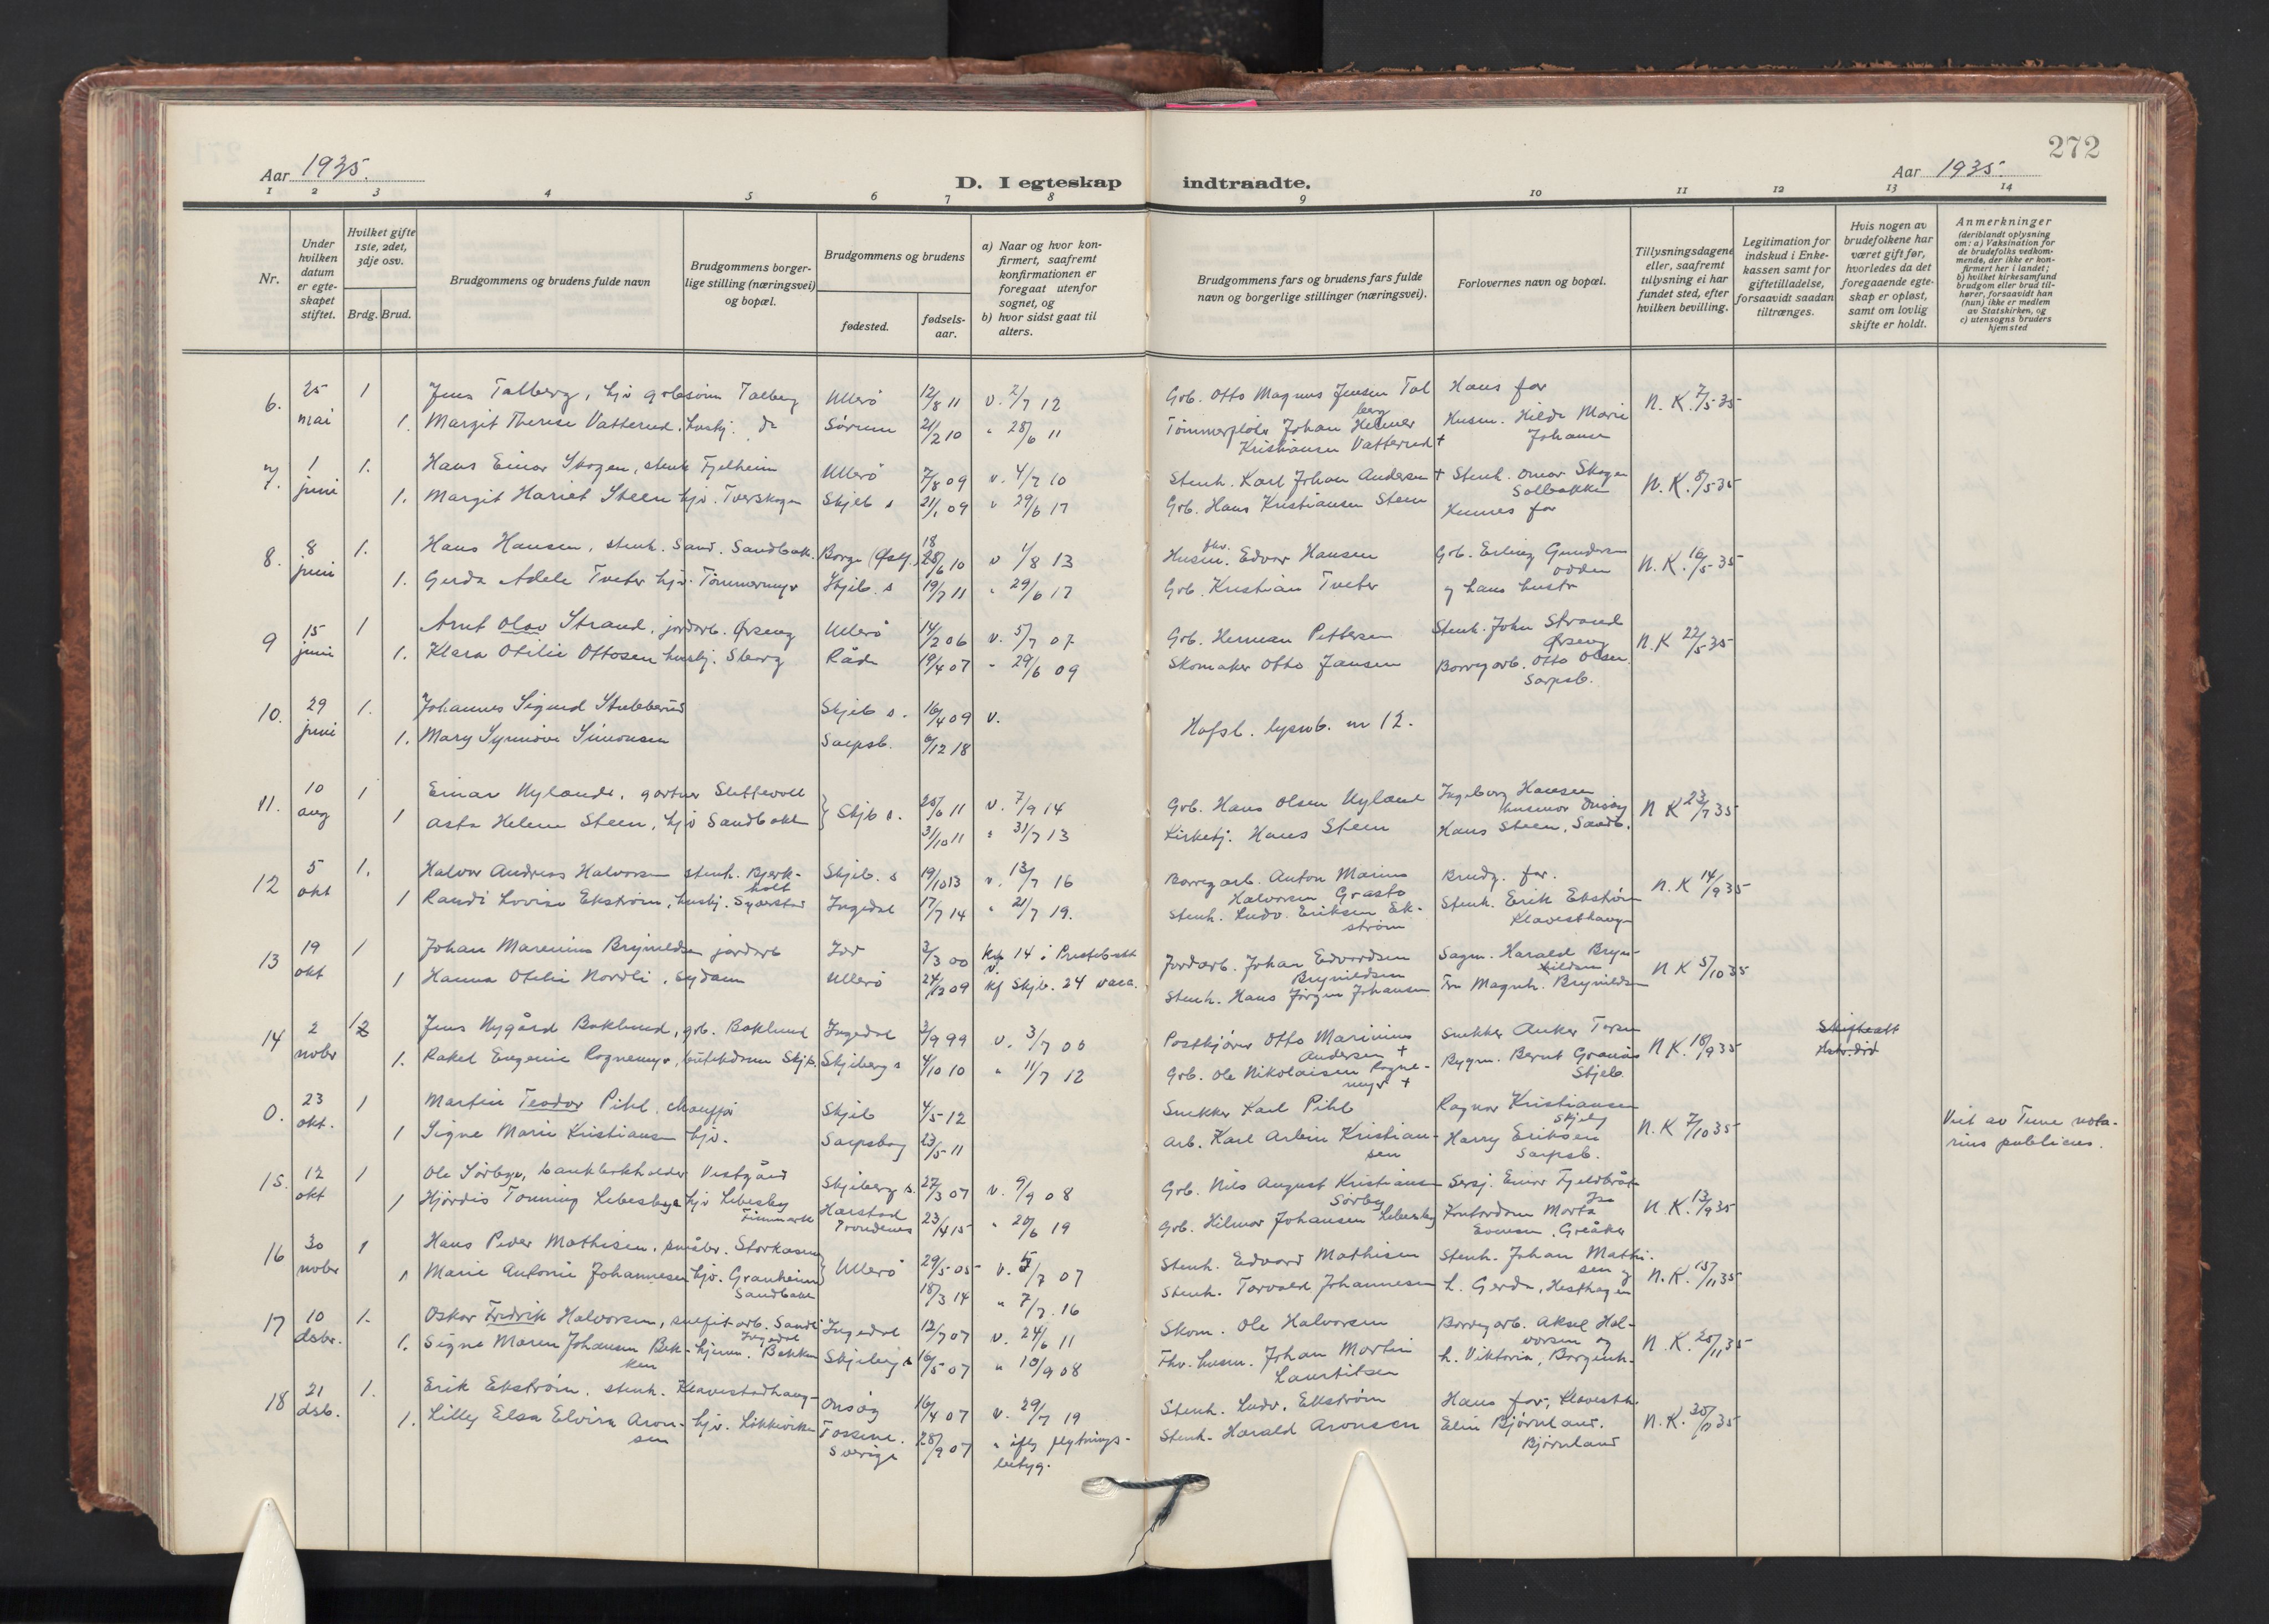 272
Aar 1935.
D. I egteskap indtraadte.
Aar 1935.
1 2 3 4 5 6 7 8 9 10 11 12 13 14
Nr.
Under hvilken datum er egteskapet stiftet.
Hvilket gifte 1ste, 2det, 3dje osv.
Brdg. Brud.
Brudgommens og brudens fulde navn
Brudgommens borgerlige stilling (næringsvei) og bopæl.
Brudgommens og brudens
fødested.
fødselsaar.
a) Naar og hvor konfirmert, saafremt konfirmationen er foregaat utenfor sognet, og
b) hvor sidst gaat til alters.
Brudgommens fars og brudens fars fulde navn og borgerlige stillinger (næringsvei).
Forlovernes navn og bopæl.
Tillysningsdagene eller, saafremt tillysning ei har fundet sted, efter hvilken bevilling.
Legitimation for indskud i Enkekassen samt for giftetilladelse, forsaavidt saadan tiltrænges.
Hvis nogen av brudefolkene har været gift før, hvorledes da det foregaaende egteskap er opløst, samt om lovlig skifte er holdt.
Anmerkninger
(deriblandt oplysning om: a) Vaksination for de brudefolks vedkommende, der ikke er konfirmert her i landet; b) hvilket kirkesamfund brudgom eller brud tilhører, forsaavidt han (hun) ikke er medlem av Statskirken, og c) utensogns bruders hjemsted
6. 25 mai 1 Jens Talberg, hjv grbsønn Talberg Ullerö 12/8 11 v. 2/7 12 Grb. Otto Magnus Jensen Talberg Hans far N. K. 7/5 35
1. Margit Therese Vatterud, husbj. do Sörum 21/2 10 " 28/6 11 Tömmerfløter Johan Helmer Kristiansen Vatterud + Husm. Hilda Marie Johanse
7. 1 juni 1. Hans Einar Skogen, stenh Fjelheim Ullerö 7/8 09 v. 4/7 10 Stenh. Karl Johan Andersen + Stenh. Omar Skogen Solbakken N. K. 8/5 35
1. Margit Hariet Steen hjv. Tverskogen Skjeb s 21/1 09 " 29/6 17 Grb. Hans Kristiansen Steen Hennes far
8. 8 juni 1. Hans Hansen, stenh. Sand. Sandbak. Borge (Østf. 18 28/6 10 v 1/8 13 Husm. fhv. Edvar Hansen Grb. Erling Gundersen odden N. K. 16/5 35
1. Gerda Adele Tveter hjv. Tömmermyr Skjeb. s 19/7 11 " 29/6 17 Grb. Kristian Tveter og hans hustr
9 15 juni 1 Arnt Olav Strand, jordarb. Ørseng Ullerö 14/2 06 v. 5/7 07 Grb. Herman Pettersen Stenh. John Strand Ørseng N. K 22/5 35
1. Klara Otilie Ottosen husbj. Skarg Råde 19/4 07 " 29/6 09 Skomaker Otto Jansen Borreg arb. Otto Olsen. Sarpsb.
10. 29 juni 1. Johannes Sigurd Stubberud Skjeb s. 16/4 09 v. Hafsl. lysnb. nr 12.
1. Mary Synnöve Simonsen Sarpsb. 6/12 18
11. 10 aug 1 Einar Nylande, gartner Slettevold } Skjb s. 28/6 11 v. 7/9 14 Grb. Hans Olsen Nyland Ingeborg Hansen husmor Onsøy N K 23/7 35
1 Asta Helene Steen, hjv Sandbakk 3/10 11 " 31/7 13 Kirketj. Hans Steen Hans Steen, Sandb.
12 5 okt 1. Halvor Andreas Halvorsen stenh. Bjerkholt Skjeb. s 19/10 13 v. 13/7 16 Borreg arb. Anton Marius Halvorsen Grasto Brudg. far. N. K 14/9 35
1 Randi Lovise Ekström, husbj. Syverstad Ingedal 17/7 14 " 21/7 19. Stenh. Ludv. Eriksen Ekström Stenh. Erik Ekström Klavesthaugen
13 19 okt 1 Johan Marenius Brynildsen jordarb Idd 3/3 00 kf 14 i Prestebakk v. Jordarb. Johan Edvardsen Brynildsen Sagm. Harald Brynildsen N K 5/10 35
1 Hanna Otilie Nordli, sydam Ullerö 24/12 09 kf Skjb. 24 vacc. Stenh. Hans Jörgen Johansen Fru Magnh. Brynildsen
14 2 nobr 2 Jens Nygård Baklund, grb. Baklund Ingedal 3/9 99 v. 3/7 00 Postkjörer Otto Marinius Andersen + Snekker Anker Torsen N K. 18/9 35 Skifteatt Hstr. död
1. Rakel Eugenie Rognemyr, butikdame Skjb. Skjeberg s 4/10 10 " 11/7 12 Grb. Ole Nikolaisen Rognemyr + Bygm. Bernt Granås Skjeb
0. 23 okt. 1 Martin Teodor Pihl. chauffør Skjeb 4/5 12 Snekker Karl Pihl Ragnar Kristiansen Skjebg N. K 7/10 35 Viet av Tune notarius publicus.
1 Signe Marie Kristiansen hjv. Sarpsborg 23/5 11 Arb. Karl Arbin Kristiansen Harry Eriksen Sarpsb.
15. 12 okt 1 Ole Sörbye, bankbokholder Vestgård Skjeberg s. 27/3 07 v. 9/9 08 Grb. Nils August Kristiansen Sörby Sersj. Einar Fjeldbråt N. K. 13/9 35
1 Hjördis Tonning Lebesbye hjv Lebesby Finnmark Harstad Trondenes 23/4 15 " 20/6 19 Grb. Hilmar Johansen Lebesby Kontordam Marta Evensen, Greåker
16 30 nobr 1 Hans Peder Mathisen. småbr. Storkasene } Ullerö 29/5 05 v. 5/7 07 Stenh. Edvard Mathisen Stenh. Johan Mathisen og N. K. 15/11 35
1 Marie Antonie Johannesen hjv. Granheim Sandbakk 18/3 14 " 7/7. 16 Stenh. Torvald Johannesen h. Gerda, Hesthagen
17 10 dsbr. 1. Oskar Fredrik Halvorsen, sulfitarb. Sandli Ingedal Ingedal 12/7 07 v. 24/6 11 Skom. Ole Halvorsen Borreg arb. Aksel Halvorsen og N. K. 20/11 35
1. Signe Maren Johansen Bekken hjemm. Bekken Skjeberg s 16/5 07 " 10/9 08 Fhv. husm. Johan Martin Lauritsen h. Viktoria, Borgenh.
18 21 dsb. 1. Erik Ekström. stenh. Klavestadhaug- Onsöy 16/4 07 v. 29/7 19 Stenh. Ludv. Ekström Hans far, Klavesth. N. K. 30/11 35
1. Lilly Elsa Elvira Aronsen hjv. Lökkeviken Tossene. Sverige 28/9 07 " ifg flytningsbetyg. Stenh. Harald Aronsen Elin Björnland. Björnland